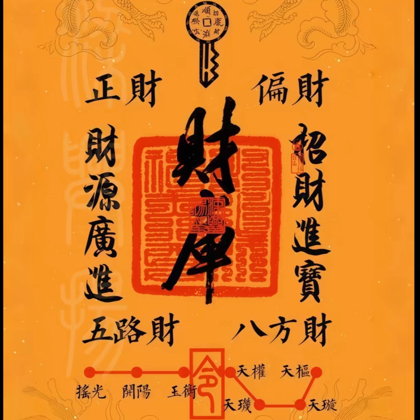 正財
偏財
財源廣進
財庫
招財進寶
五路財
八方財
令
搖光
開陽
玉衡
天權
天樞
天璣
天璇